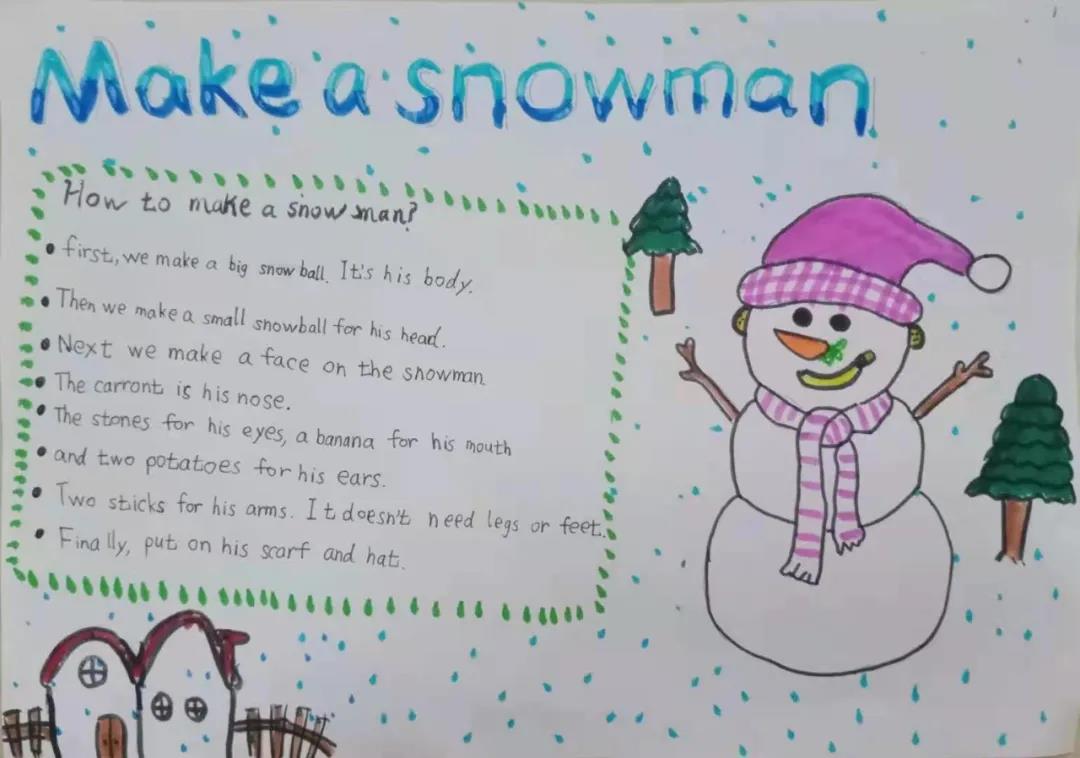 Make a snowman
How to make a snowman?
• first, we make a big snow ball. It's his body.
• Then we make a small snowball for his head.
• Next we make a face on the snowman
• The carront is his nose.
• The stones for his eyes, a banana for his mouth
• and two potatoes for his ears.
• Two sticks for his arms. It doesn't need legs or feet.
• Finally, put on his scarf and hat.